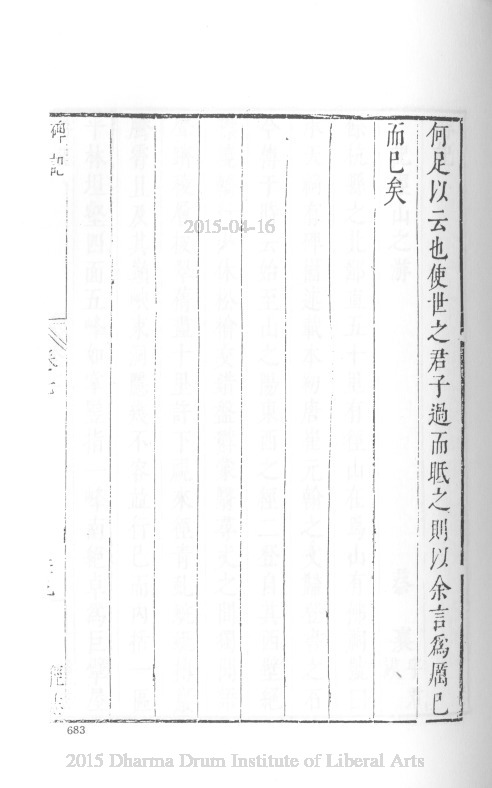 何足以云也使世之君子過而眡之則以余言爲厲已
而已矣
碑記
683
2015-04-16
2015 Dharma Drum Institute of Liberal Arts